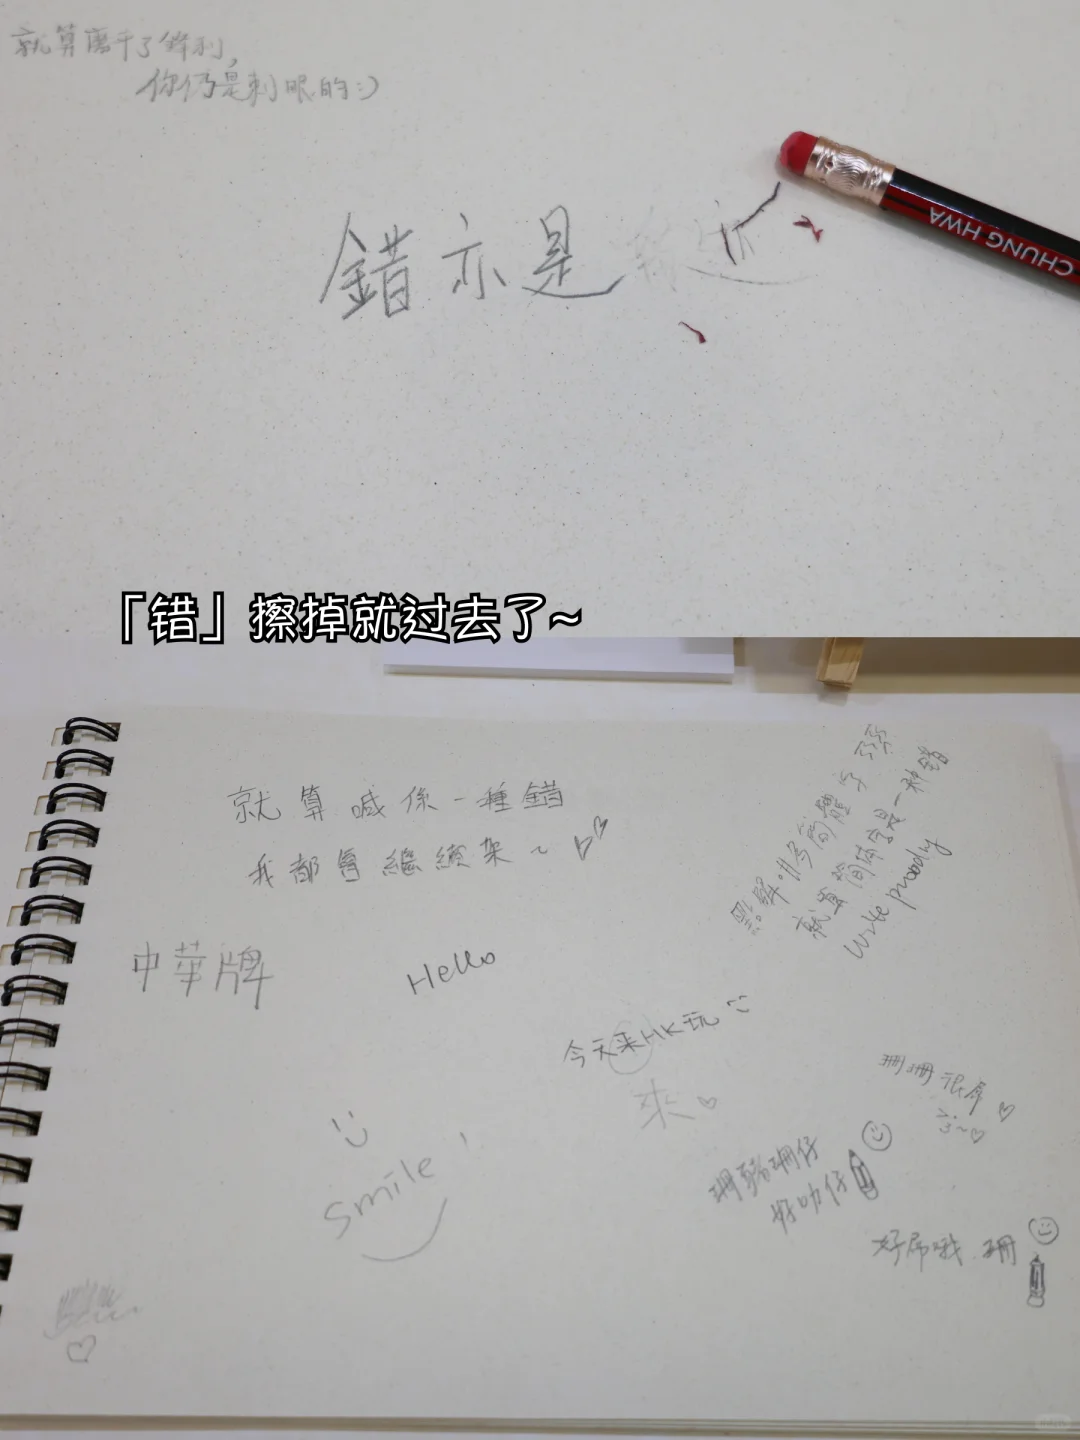 就算磨平了鋒利，
你仍是刺眼的:)
錯亦是
CHUNG HWA
「错」擦掉就过去了~
就算喊係一種錯
我都會繼續架~
中華牌
Hello
今天来HK玩
來
Smile!
就算始简体字是一种錯
Write proodly
珊珊很犀
珊豬珊仔
好叻仔
好犀哦 珊